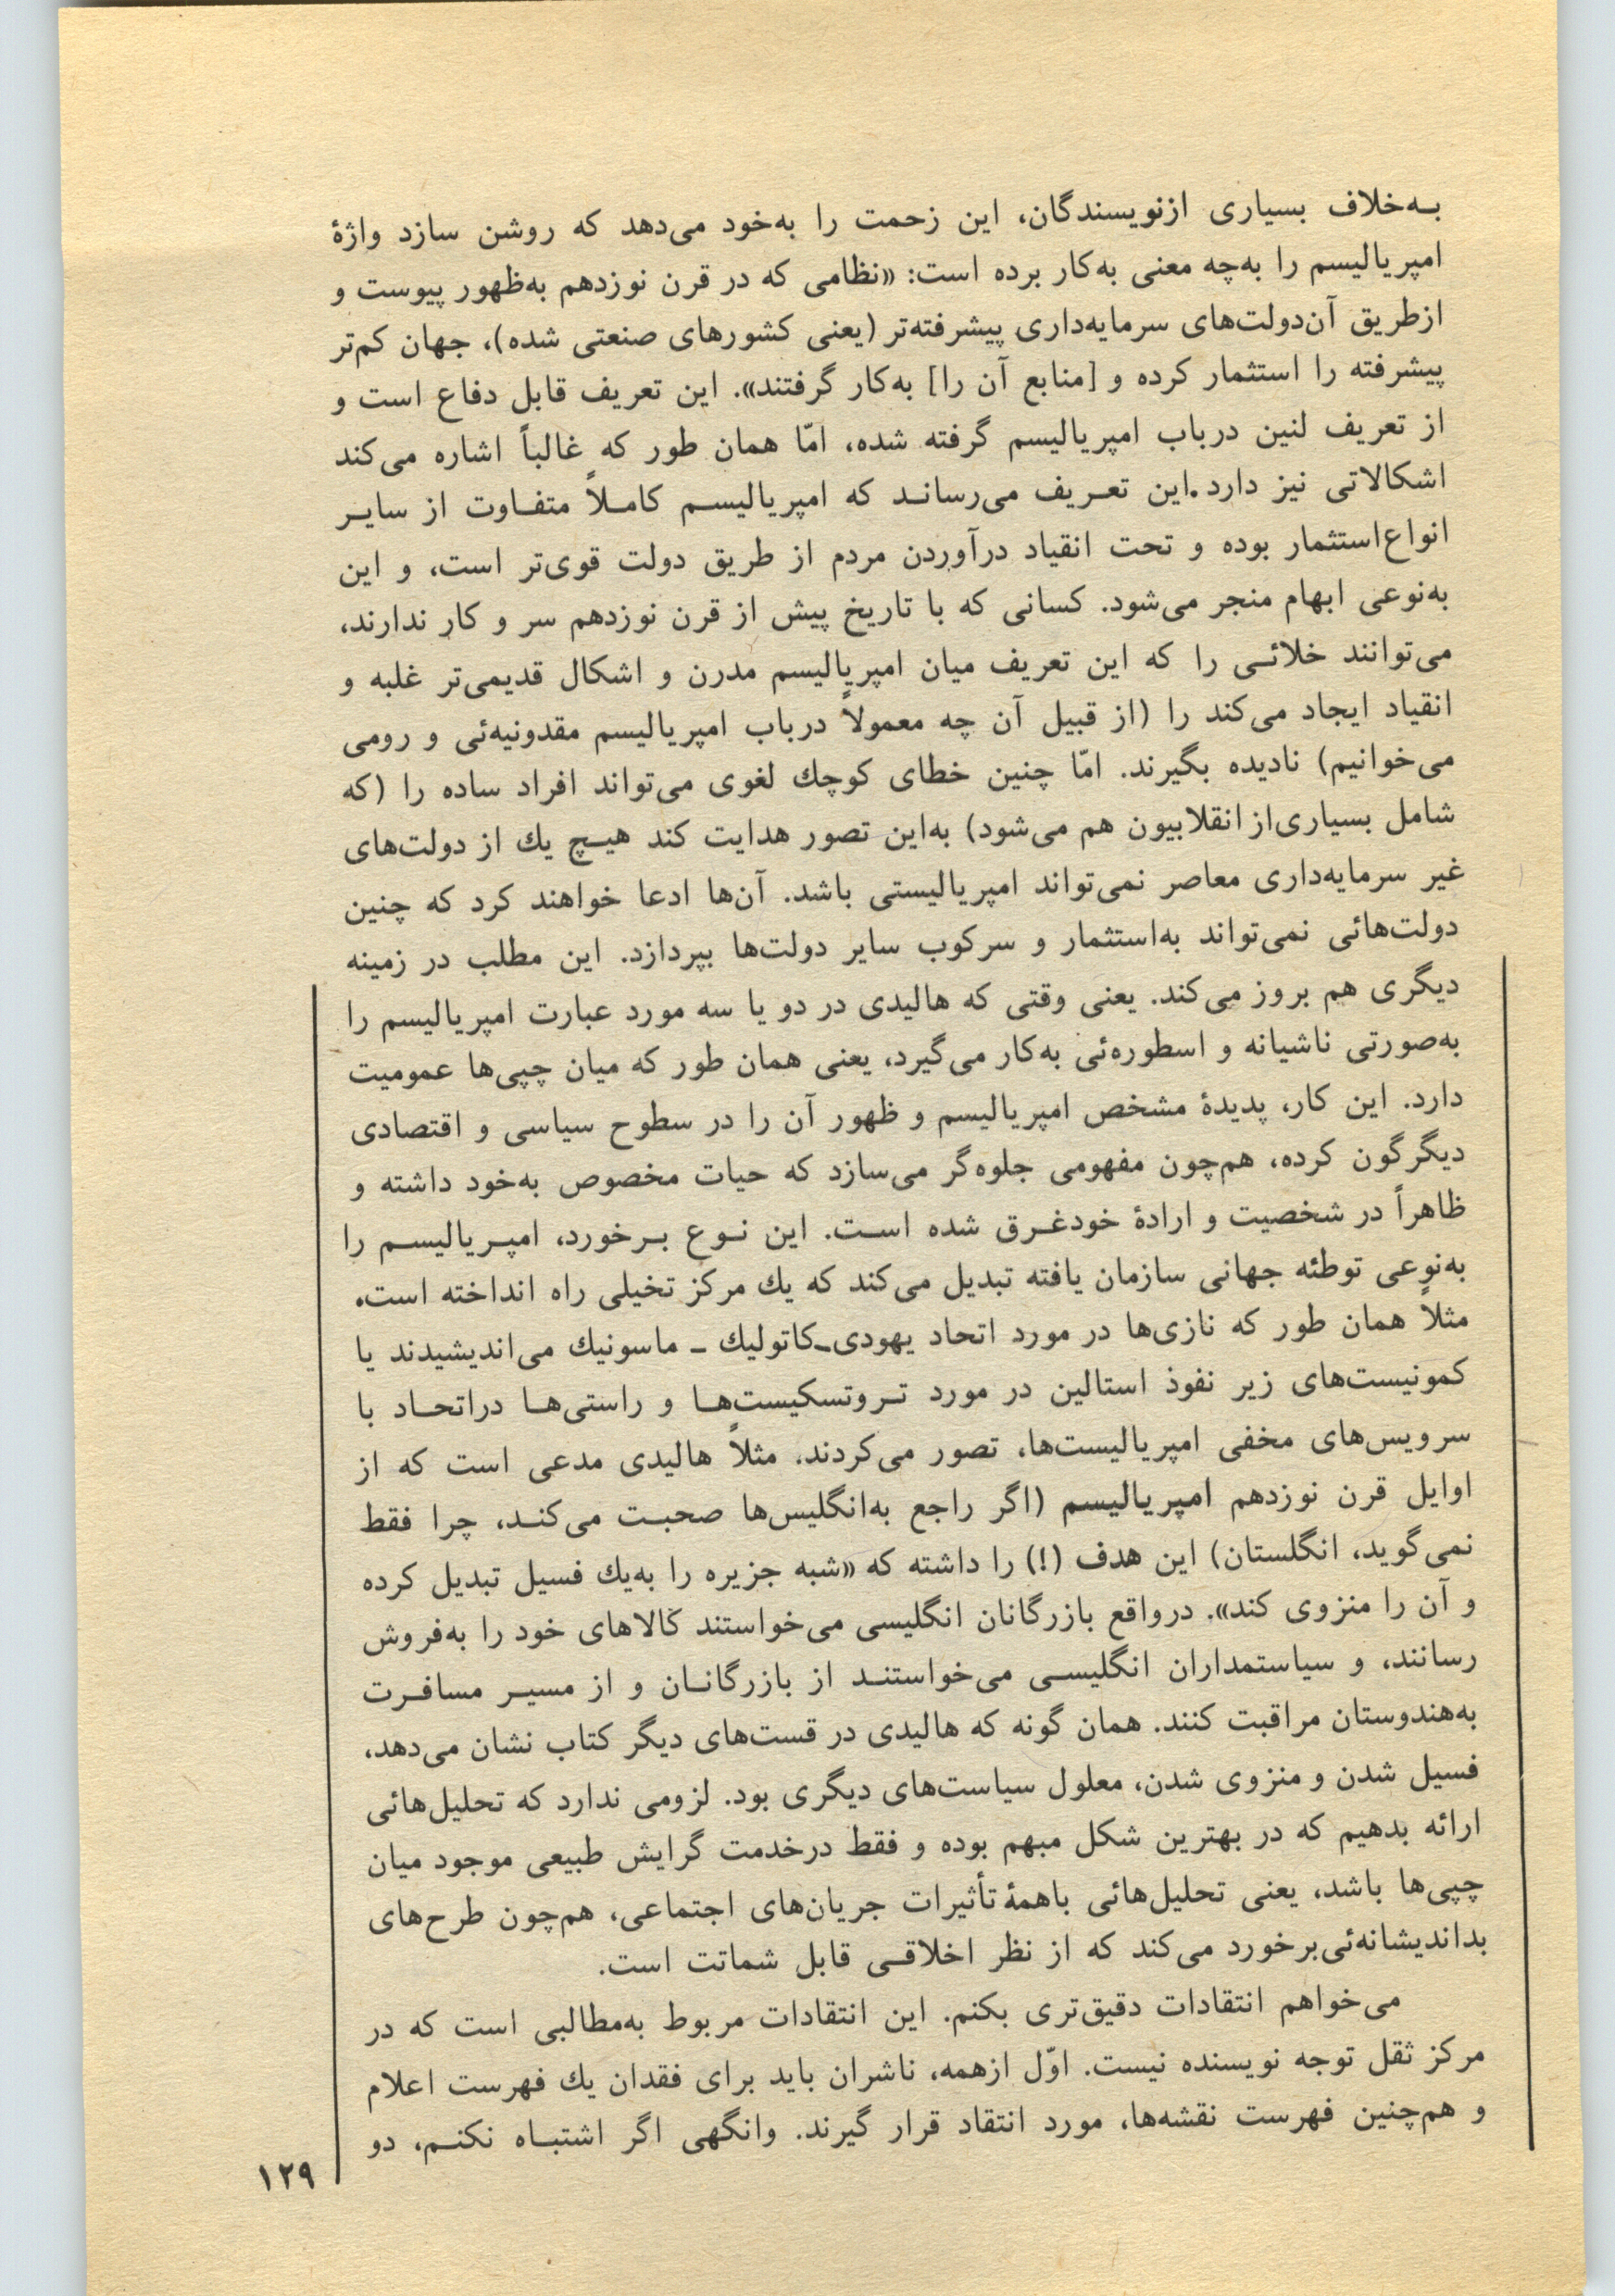 به‌خلاف بسیاری ازنویسندگان، این زحمت را به‌خود می‌دهد که روشن سازد واژهٔ
امپریالیسم را به‌چه معنی به‌کار برده است: «نظامی که در قرن نوزدهم به‌ظهور پیوست و
ازطریق آن‌دولت‌های سرمایه‌داری پیشرفته‌تر (یعنی کشورهای صنعتی شده)، جهان کم‌تر
پیشرفته را استثمار کرده و [منابع آن را] به‌کار گرفتند». این تعریف قابل دفاع است و
از تعریف لنین درباب امپریالیسم گرفته شده، امّا همان طور که غالباً اشاره می‌کند
اشکالاتی نیز دارد.این تعریف می‌رساند که امپریالیسم کاملاً متفاوت از سایر
انواع‌استثمار بوده و تحت انقیاد درآوردن مردم از طریق دولت قوی‌تر است، و این
به‌نوعی ابهام منجر می‌شود. کسانی که با تاریخ پیش از قرن نوزدهم سر و کار ندارند،
می‌توانند خلائی را که این تعریف میان امپریالیسم مدرن و اشکال قدیمی‌تر غلبه و
انقیاد ایجاد می‌کند را (از قبیل آن چه معمولاً درباب امپریالیسم مقدونیه‌ئی و رومی
می‌خوانیم) نادیده بگیرند. امّا چنین خطای کوچك لغوی می‌تواند افراد ساده را (که
شامل بسیاری‌از انقلابیون هم می‌شود) به‌این تصور هدایت کند هیچ یك از دولت‌های
غیر سرمایه‌داری معاصر نمی‌تواند امپریالیستی باشد. آن‌ها ادعا خواهند کرد که چنین
دولت‌هائی نمی‌تواند به‌استثمار و سرکوب سایر دولت‌ها بپردازد. این مطلب در زمینه
دیگری هم بروز می‌کند. یعنی وقتی که هالیدی در دو یا سه مورد عبارت امپریالیسم را
به‌صورتی ناشیانه و اسطوره‌ئی به‌کار می‌گیرد، یعنی همان طور که میان چپی‌ها عمومیت
دارد. این کار، پدیدهٔ مشخص امپریالیسم و ظهور آن را در سطوح سیاسی و اقتصادی
دیگرگون کرده، هم‌چون مفهومی جلوه‌گر می‌سازد که حیات مخصوص به‌خود داشته و
ظاهراً در شخصیت و ارادهٔ خودغرق شده است. این نوع برخورد، امپریالیسم را
به‌نوعی توطئه جهانی سازمان یافته تبدیل می‌کند که یك مرکز تخیلی راه انداخته است.
مثلاً همان طور که نازی‌ها در مورد اتحاد یهودی-کاتولیك - ماسونیك می‌اندیشیدند یا
کمونیست‌های زیر نفوذ استالین در مورد تروتسکیست‌ها و راستی‌ها دراتحاد با
سرویس‌های مخفی امپریالیست‌ها، تصور می‌کردند. مثلاً هالیدی مدعی است که از
اوایل قرن نوزدهم امپریالیسم (اگر راجع به‌انگلیس‌ها صحبت می‌کند، چرا فقط
نمی‌گوید، انگلستان) این هدف (!) را داشته که «شبه جزیره را به‌یك فسیل تبدیل کرده
و آن را منزوی کند». درواقع بازرگانان انگلیسی می‌خواستند کالاهای خود را به‌فروش
رسانند، و سیاستمداران انگلیسی می‌خواستند از بازرگانان و از مسیر مسافرت
به‌هندوستان مراقبت کنند. همان گونه که هالیدی در قست‌های دیگر کتاب نشان می‌دهد،
فسیل شدن و منزوی شدن، معلول سیاست‌های دیگری بود. لزومی ندارد که تحلیل‌هائی
ارائه بدهیم که در بهترین شکل مبهم بوده و فقط درخدمت گرایش طبیعی موجود میان
چپی‌ها باشد، یعنی تحلیل‌هائی باهمهٔ تأثیرات جریان‌های اجتماعی، هم‌چون طرح‌های
بداندیشانه‌ئی‌برخورد می‌کند که از نظر اخلاقی قابل شماتت است.
می‌خواهم انتقادات دقیق‌تری بکنم. این انتقادات مربوط به‌مطالبی است که در
مرکز ثقل توجه نویسنده نیست. اوّل ازهمه، ناشران باید برای فقدان یك فهرست اعلام
و هم‌چنین فهرست نقشه‌ها، مورد انتقاد قرار گیرند. وانگهی اگر اشتباه نکنم، دو
۱۲۹